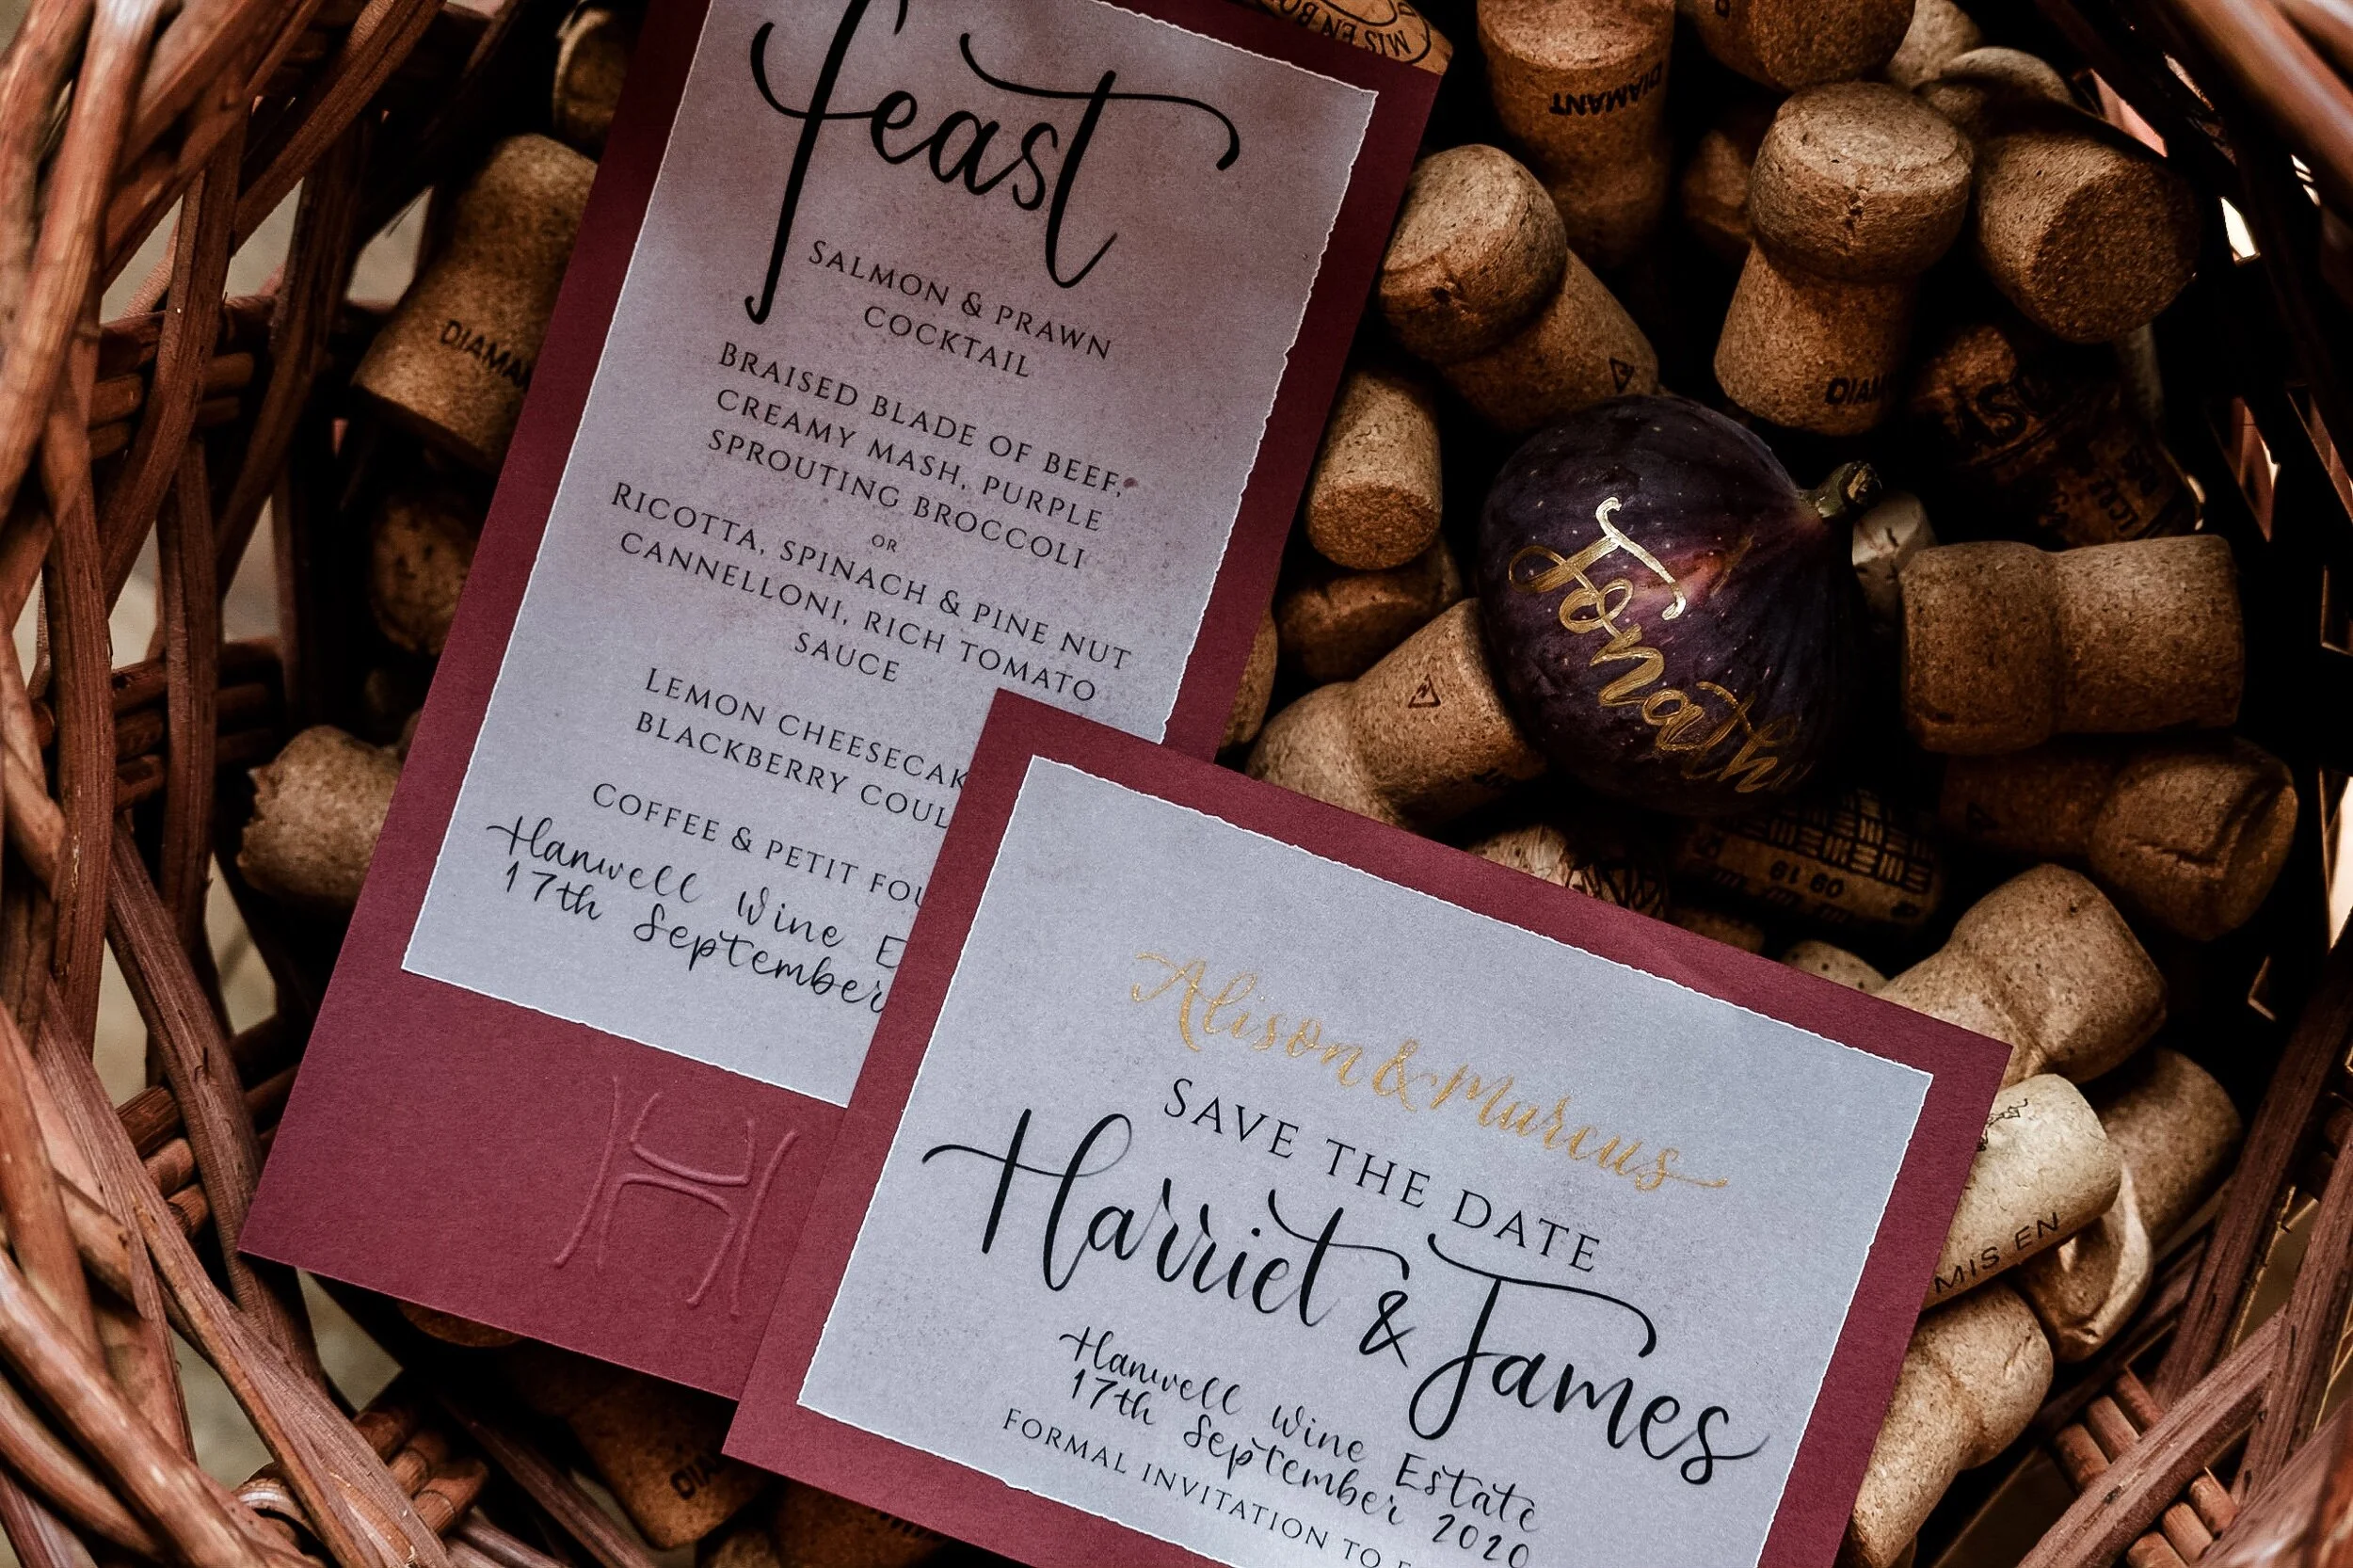 feast
SALMON & PRAWN
COCKTAIL
BRAISED BLADE OF BEEF,
CREAMY MASH, PURPLE
SPROUTING BROCCOLI
OR
RICOTTA, SPINACH & PINE NUT
CANNELLONI, RICH TOMATO
SAUCE
LEMON CHEESECAK
BLACKBERRY COUL
COFFEE & PETIT FOU
Hanwell Wine E
17th September
H
Alison & Marcus
SAVE THE DATE
Harriet & James
Hanwell Wine Estate
17th September 2020
FORMAL INVITATION TO F
Jonath
MIS EN BO
DIAMANT
DIAM
DIAMAN
MIS EN